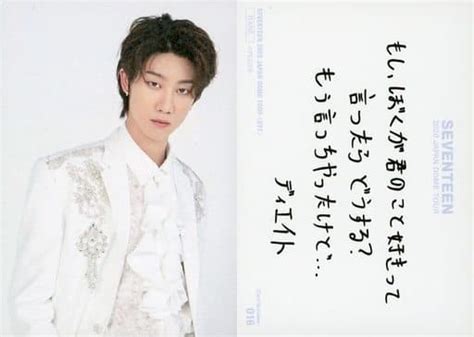 もし、ぼくが君のこと好きって
言ったらどうする?
もう言っちゃったけど…
ディエイト
SEVENTEEN
2020 JAPAN DOME TOUR
016